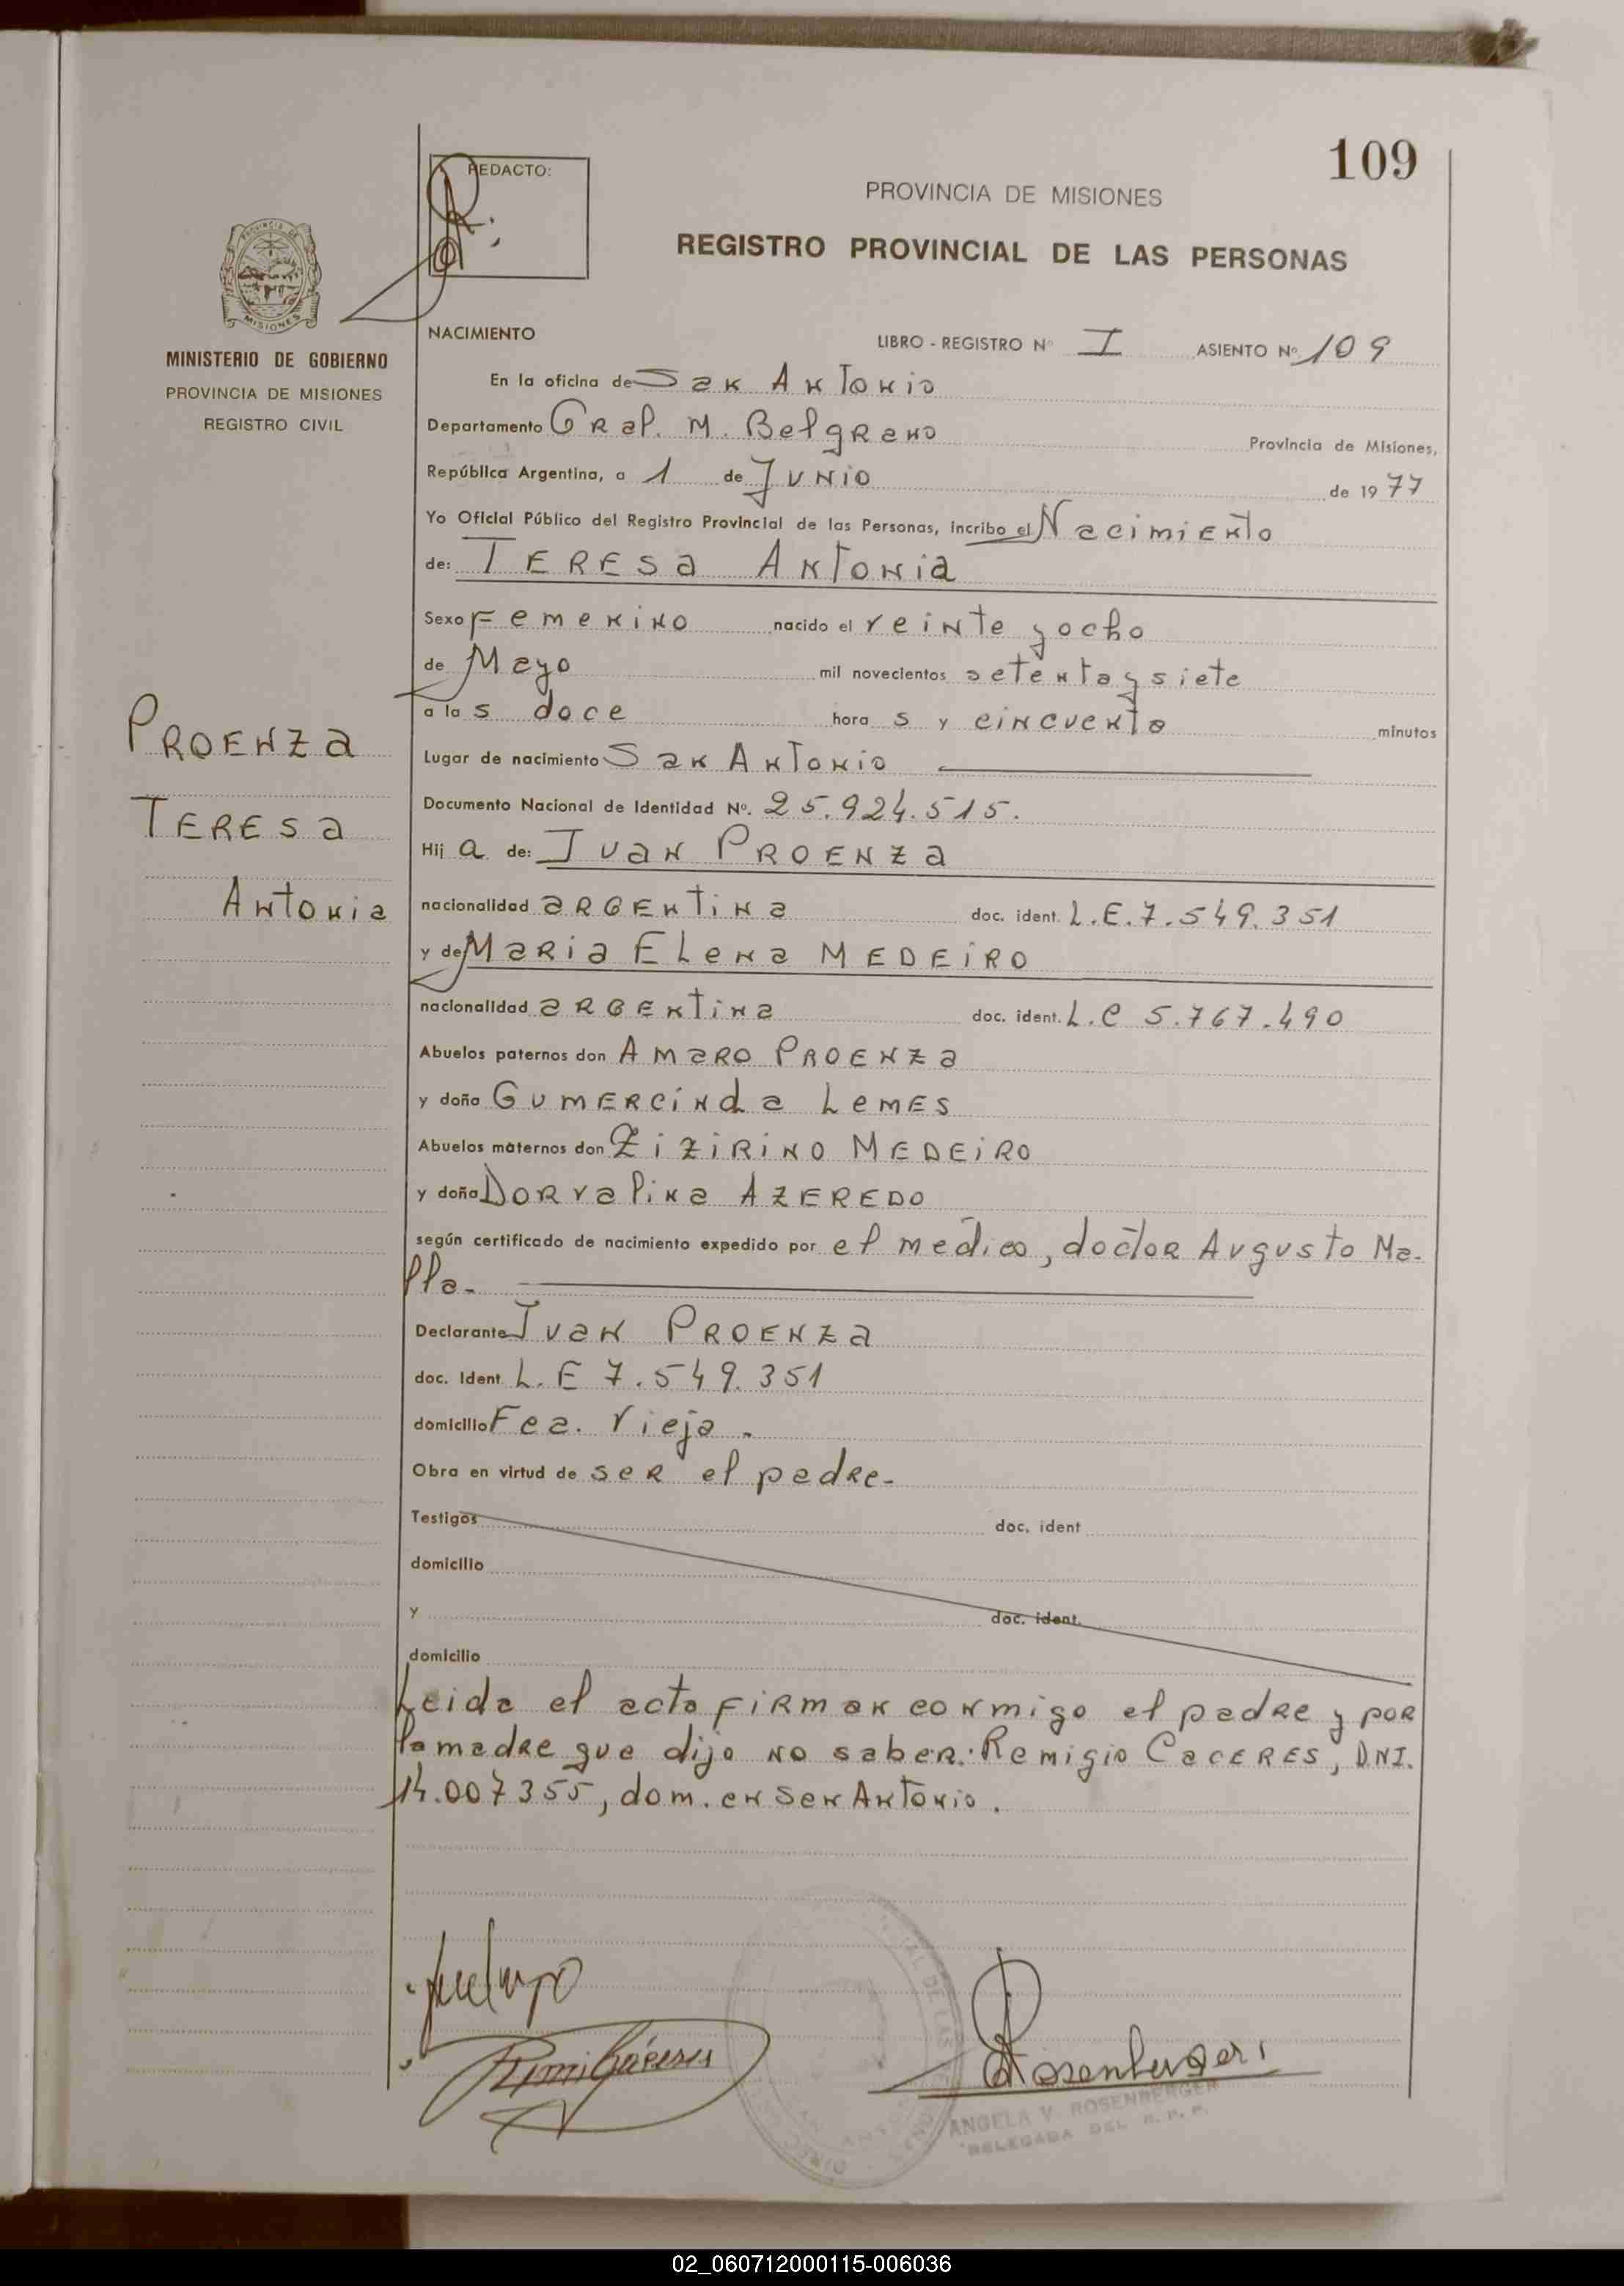 109
REDACTO:
PROVINCIA DE MISIONES
REGISTRO PROVINCIAL DE LAS PERSONAS
MISIONES
MINISTERIO DE GOBIERNO
PROVINCIA DE MISIONES
REGISTRO CIVIL
NACIMIENTO LIBRO - REGISTRO Nº I ASIENTO Nº 109
En la oficina de San Antonio
Departamento Gral. M. Belgrano Provincia de Misiones,
República Argentina, a 1 de Junio de 1977
Yo Oficial Público del Registro Provincial de las Personas, incribo el Nacimiento
de: TERESA Antonia
Sexo Femenino nacido el veinte y ocho
de Mayo mil novecientos setenta y siete
a las doce horas y cincuenta minutos
Lugar de nacimiento San Antonio
Documento Nacional de Identidad Nº. 25.924.515.
Hija de: Juan PROENZA
nacionalidad ARGENTINA doc. ident. L.E. 7.549.351
y de MARIA ELENA MEDEIRO
nacionalidad ARGENTINA doc. ident. L.C 5.767.490
Abuelos paternos don AMARO PROENZA
y doña GUMERCINDA LEMES
Abuelos maternos don ZIZIRINO MEDEIRO
y doña DORVALINA AZEREDO
según certificado de nacimiento expedido por el médico, doctor Augusto Ma-
lla.
Declarante Juan PROENZA
doc. Ident. L.E 7.549.351
domicilio Fca. Vieja.
Obra en virtud de ser el padre.
Testigos doc. ident
domicilio
y doc. ident.
domicilio
Leida el acta firman conmigo el padre y por
la madre que dijo no saber: Remigio CACERES, DNI.
14.007355, dom. en San Antonio.
PROENZA
TERESA
Antonia
Rosenberger
ANGELA V. ROSENBERGER
DELEGADA DEL R. P. P.
02_060712000115-006036